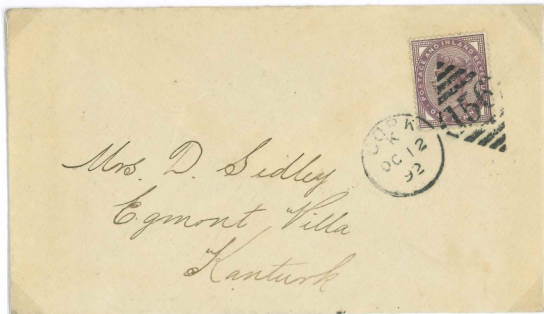 POSTAGE AND INLAND REVENUE
156
CORK
K K
OC 12
92
Mrs. D. Sidley
Egmont Villa
Kanturk